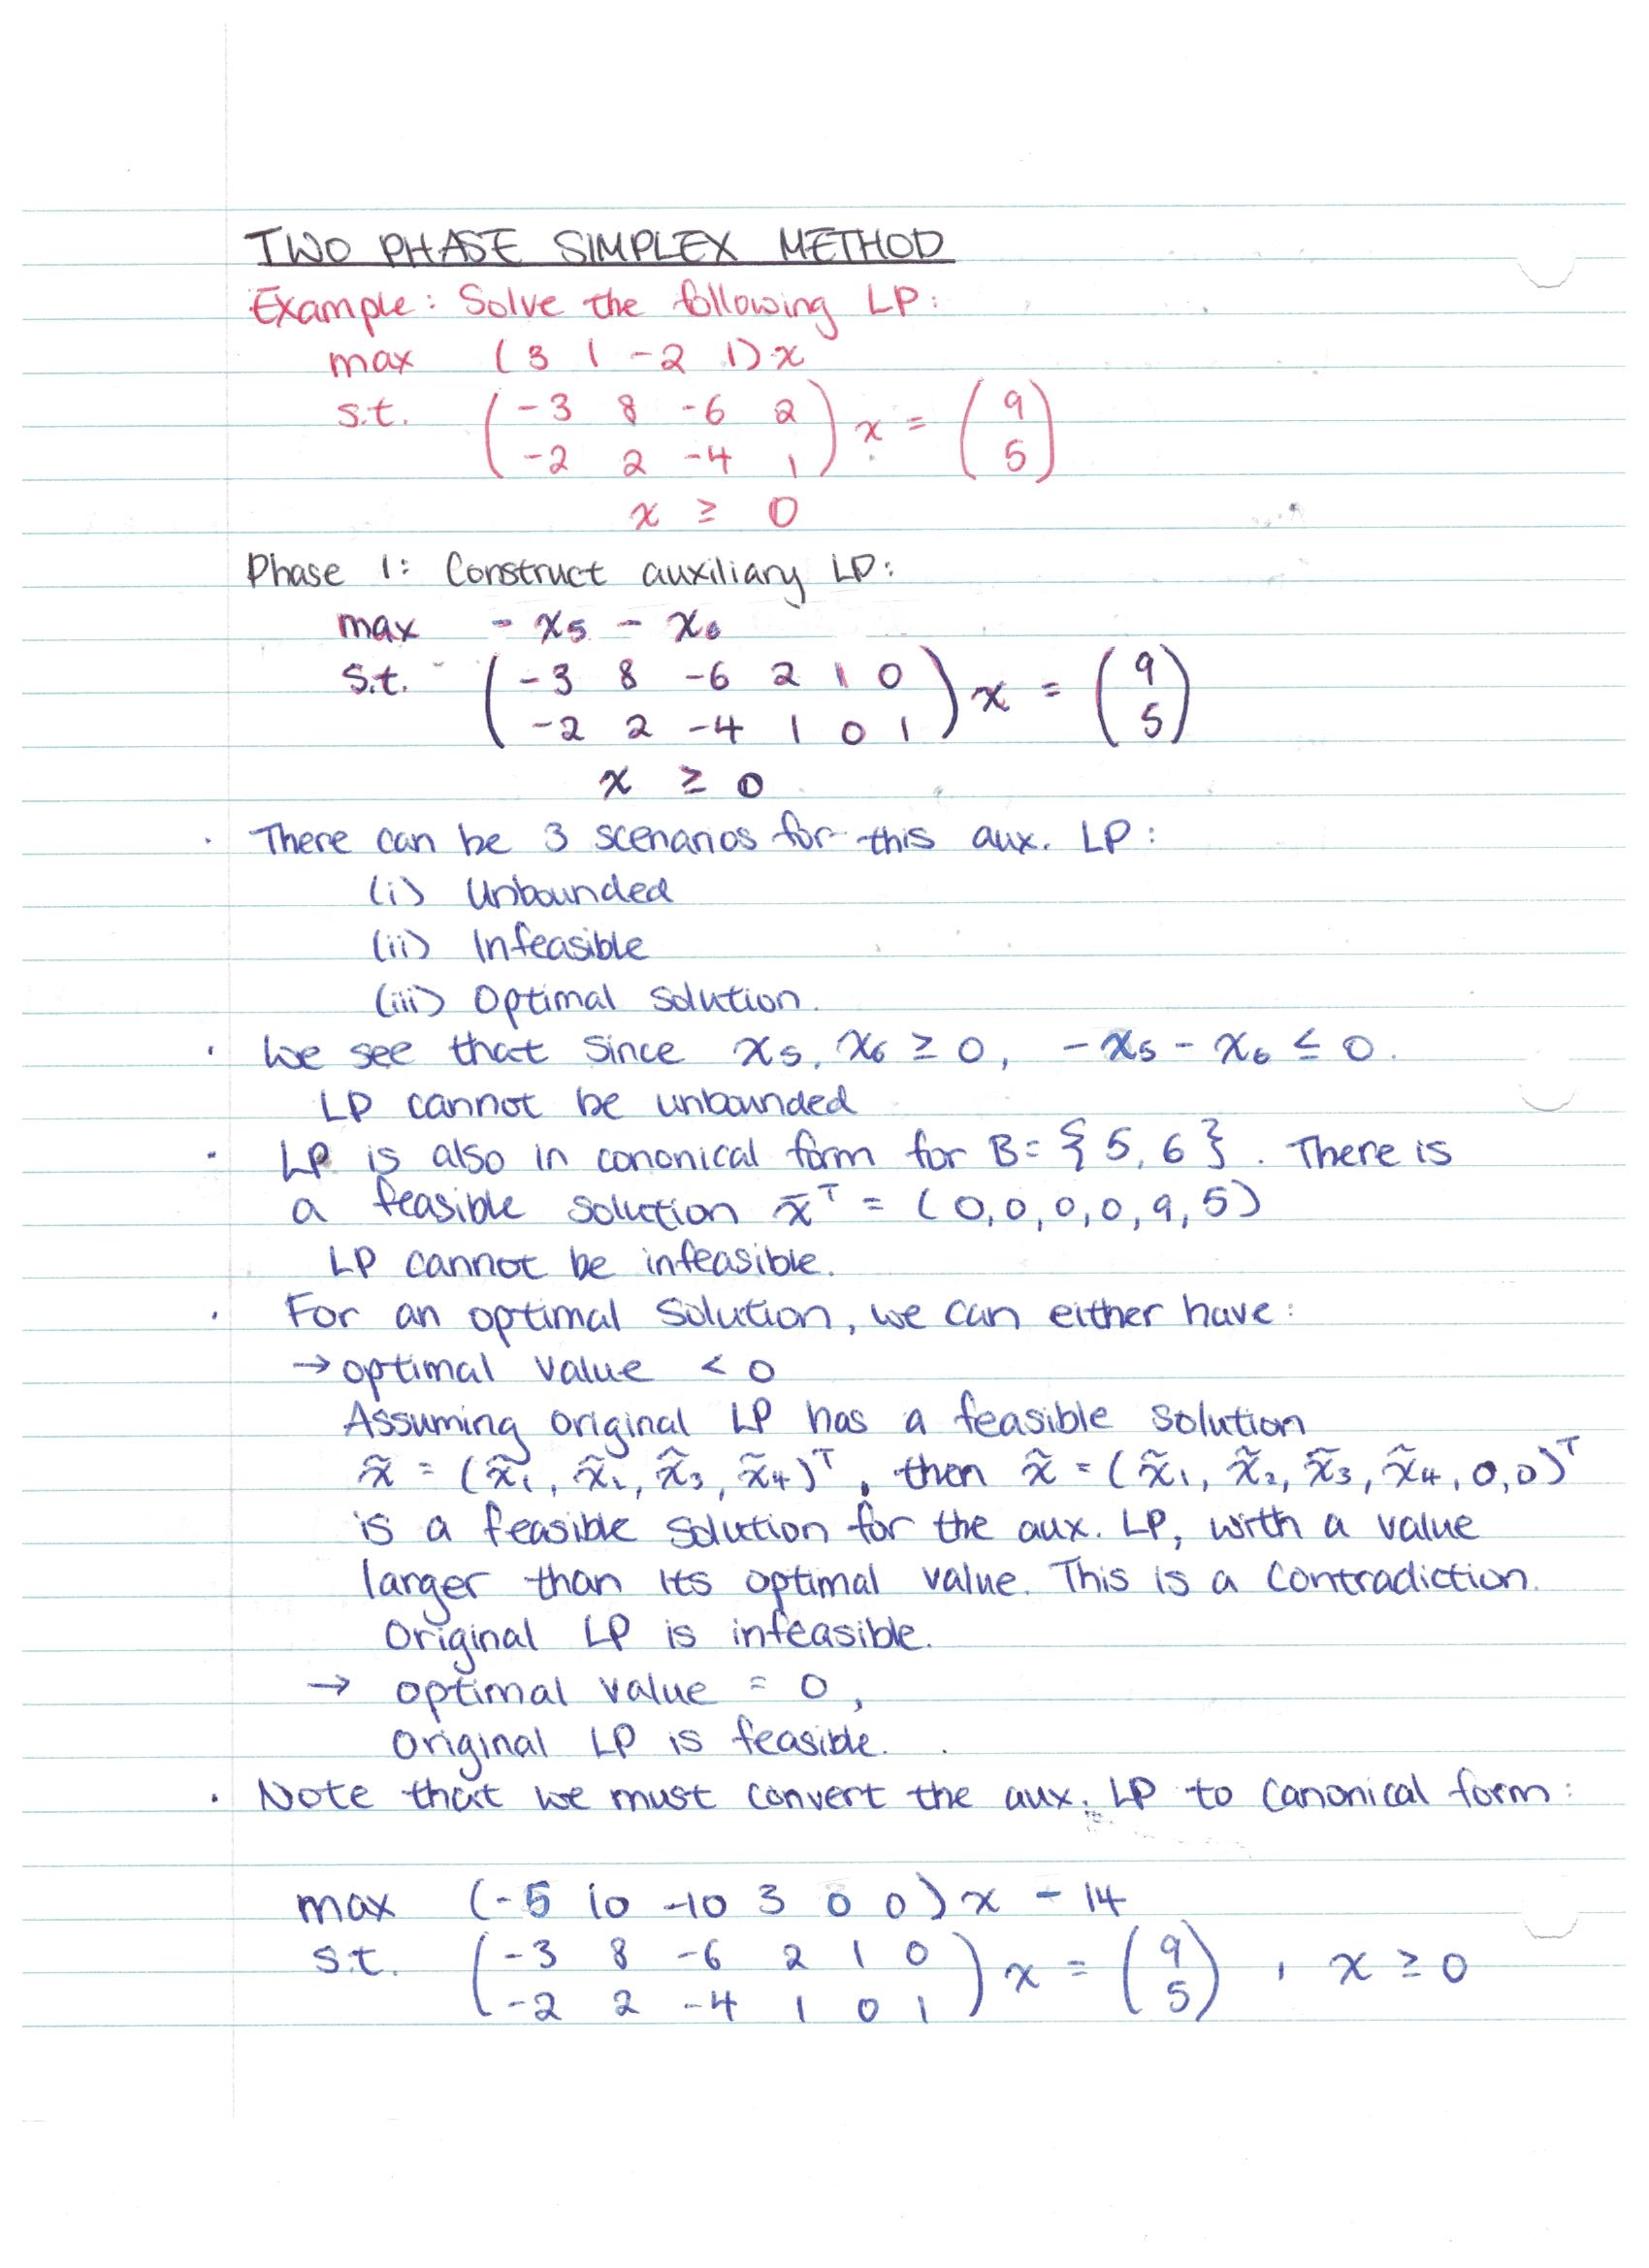 TWO PHASE SIMPLEX METHOD
Example: Solve the following LP:
max (3 1 -2 1)x
s.t. ( -3 8 -6 2
-2 2 -4 1 ) x = ( 9
5 )
x ≥ 0
Phase 1: Construct auxiliary LP:
max - x₅ - x₆
s.t. ( -3 8 -6 2 1 0
-2 2 -4 1 0 1 ) x = ( 9
5 )
x ≥ 0
· There can be 3 scenarios for this aux. LP:
(i) Unbounded
(ii) Infeasible
(iii) Optimal solution.
· We see that since x₅, x₆ ≥ 0, -x₅ - x₆ ≤ 0.
LP cannot be unbounded
· LP is also in cononical form for B = { 5, 6 }. There is
a feasible solution x̄ᵀ = (0,0,0,0,9,5)
LP cannot be infeasible.
· For an optimal solution, we can either have:
→ optimal value < 0
Assuming original LP has a feasible solution
x̃ = (x̃₁, x̃₂, x̃₃, x̃₄)ᵀ, then x̃ = (x̃₁, x̃₂, x̃₃, x̃₄, 0,0)ᵀ
is a feasible solution for the aux. LP, with a value
larger than its optimal value. This is a contradiction.
Original LP is infeasible.
→ optimal value = 0,
Original LP is feasible.
· Note that we must convert the aux. LP to canonical form:
max (-5 10 -10 3 0 0)x - 14
s.t. ( -3 8 -6 2 1 0
-2 2 -4 1 0 1 ) x = ( 9
5 ) , x ≥ 0